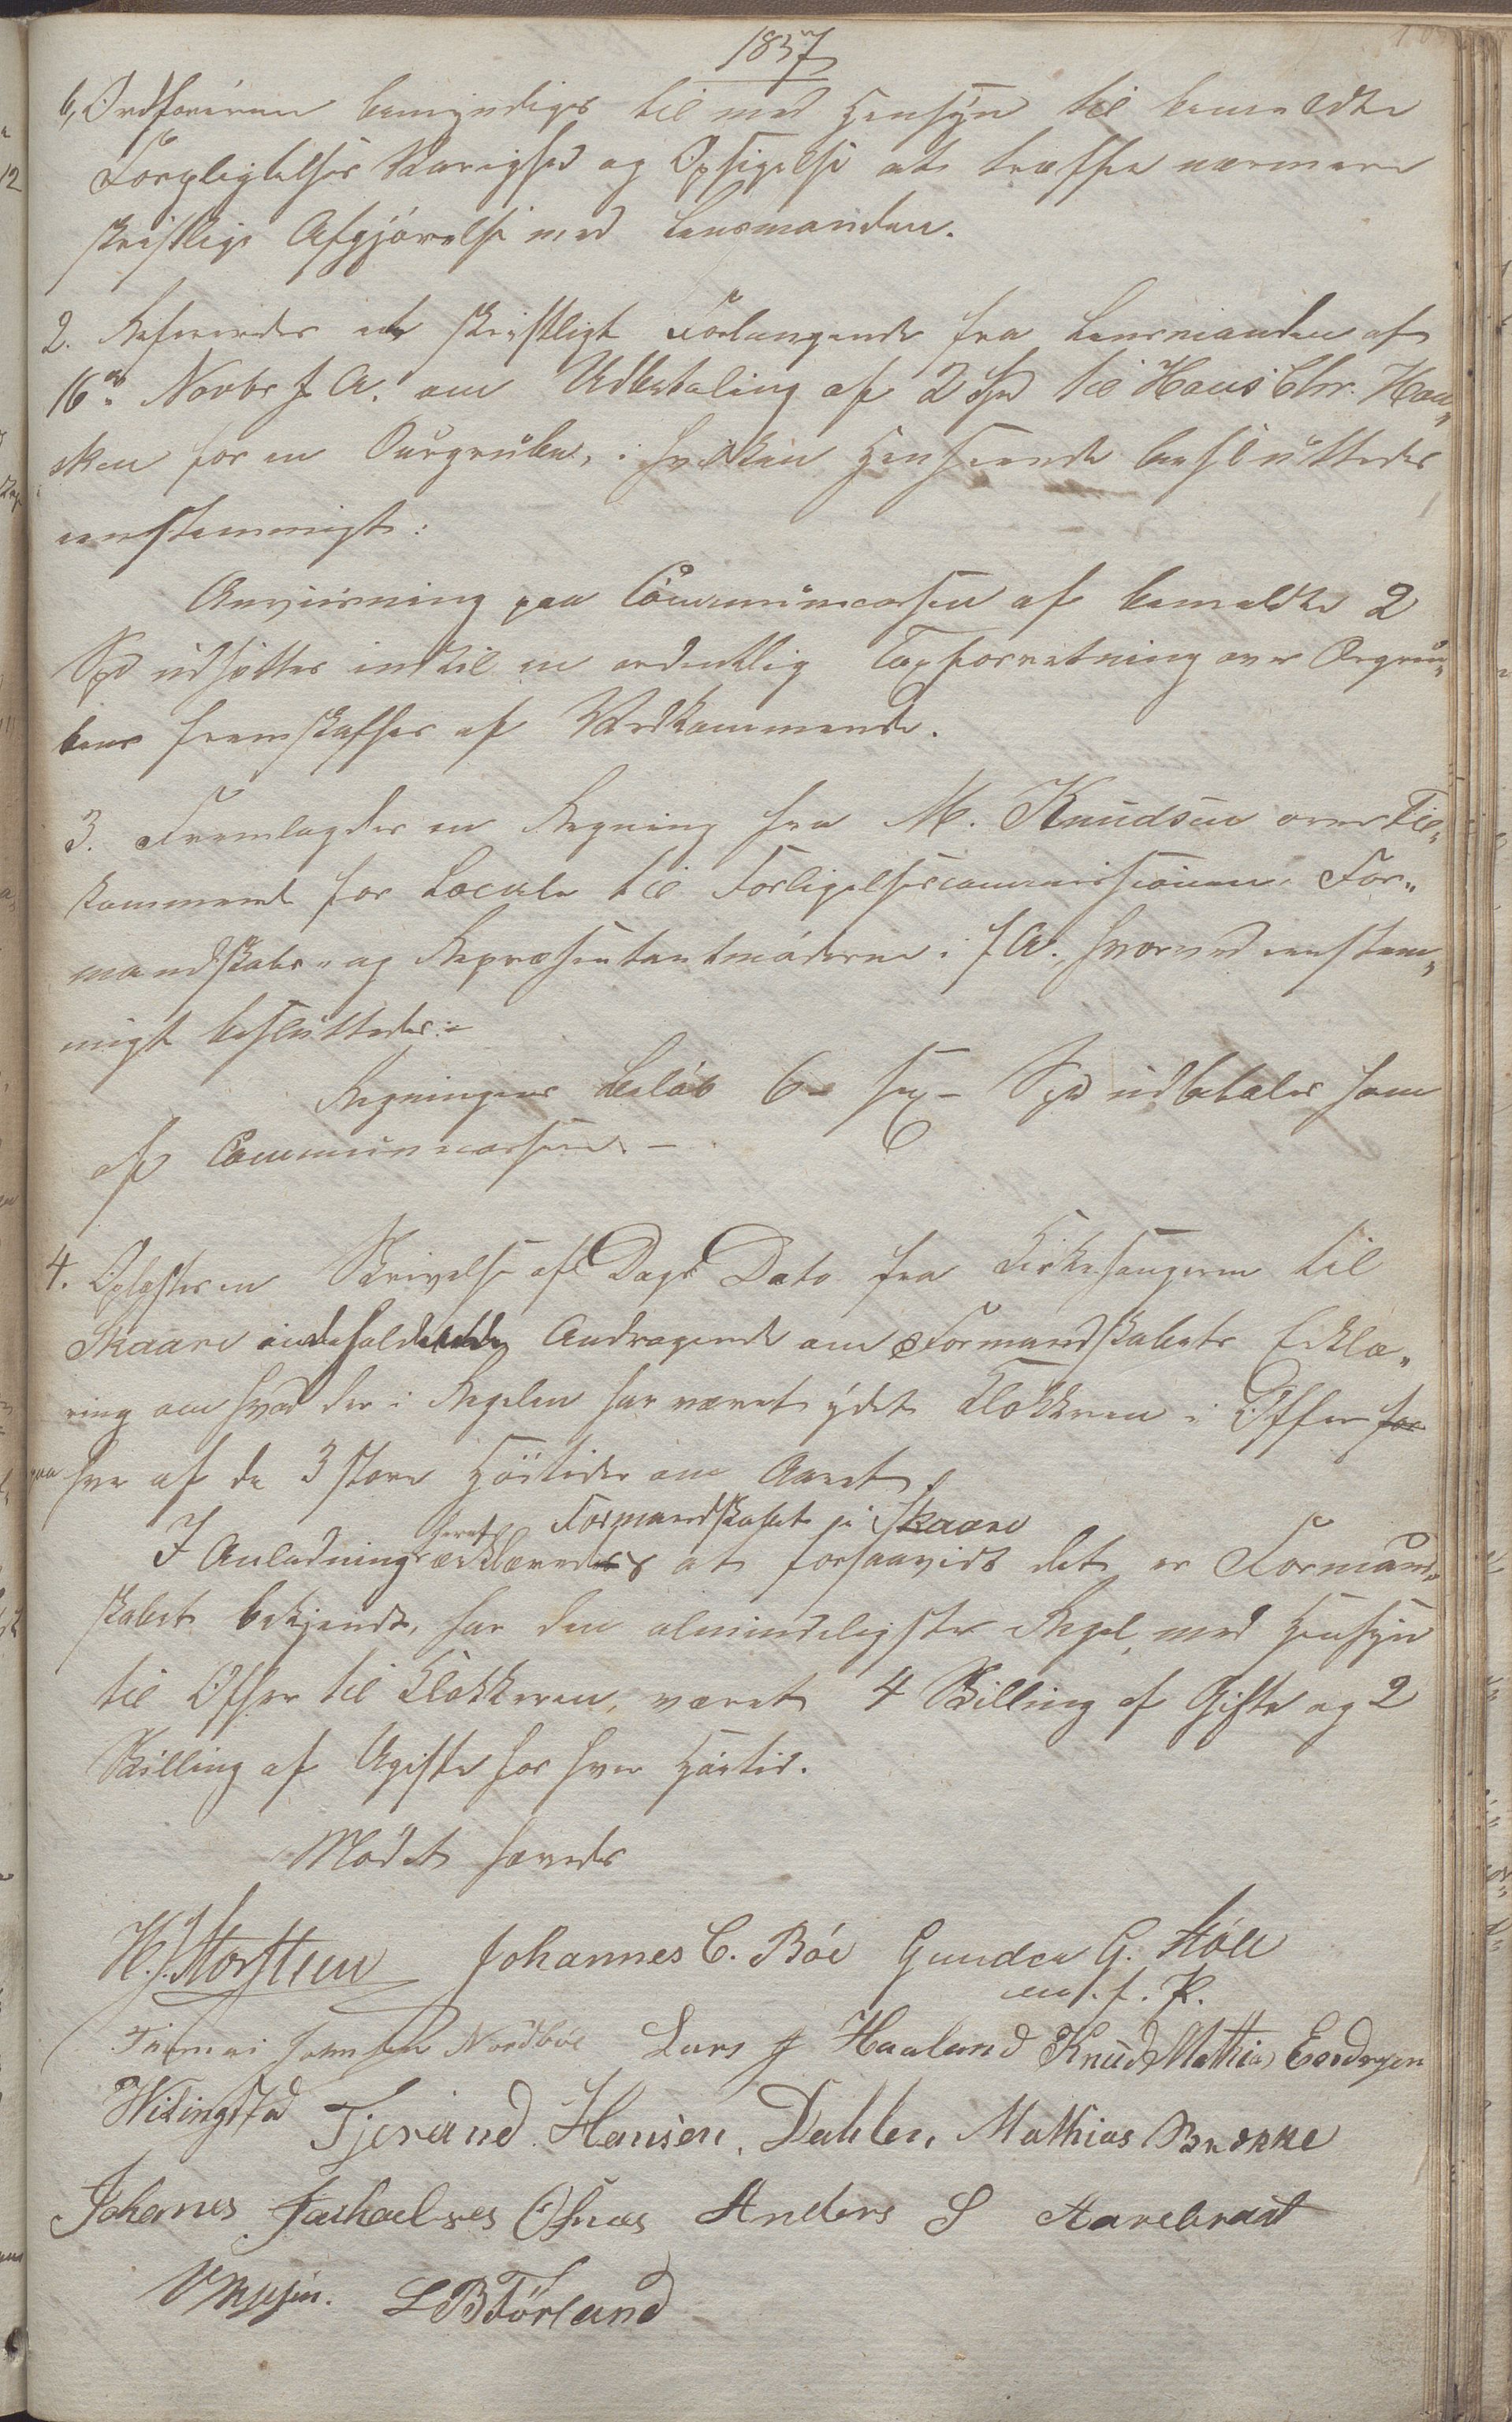 1857
b, Ordføreren bemyndiges til med Hensyn til bemeldte
Forpligtelses Varighed og Opsigelse at træffe nærmere
skriftlig Afgjörelse med Lensmanden.
2. Refereredes et skriftligt Forlangende fra Lensmanden af
16de Novbr f. A. om Udbetaling af 2 Spd til Hans Chr. Hau„
sken for en Ourgrube, i hvilken Henseende besluttedes
eenstemmigt:
Anviisning paa Communecassen af bemeldte 2
Spd udsættes indtil en ordentlig Taxforretning over Orgru„
bens fremskaffes af Vedkommende.
3. Fremlagdes en Regning fra M. Knudsen over Til„
kommende for Locale til Forligelsescommissionen, For„
mandskabs- og Repræsentantmöderne i f. A., hvorved eenstem„
migt besluttedes:
Regningens Belöb 6 - sex - Spd udbetales ham
af Communecassen. -
4. Oplæstes en Skrivelse af Dags Dato fra Kirkesangeren til
Skaare indeholdende Andragende om Formandskabets Erklæ„
ring om hvad der i Regelen har været ydet Klokkeren i Offer for
paa hver af de 3 store Höitider om Aaret.
heraf Formandskabet i Skaare
I Anledning erklæredes at forsaavidt det er Formand„
skabet bekjendt, har den almindeligste Regel, med Hensyn
til Offer til Klokkeren, været 4 Skilling af Gifte og 2
Skilling af Ugifte for hver Höitid.
Mödet hævedes
H. J. Storsteen Johannes C. Böe Gunder G. Höie
m. f. P.
Johnsen Nordböe Lars J Haaland Knud Mathias Endresen
Widingstad Tjerand Hansen, Dahlen, Mathias Brekke
Johanes Osnes Anders S Aarebrast
L B Förland